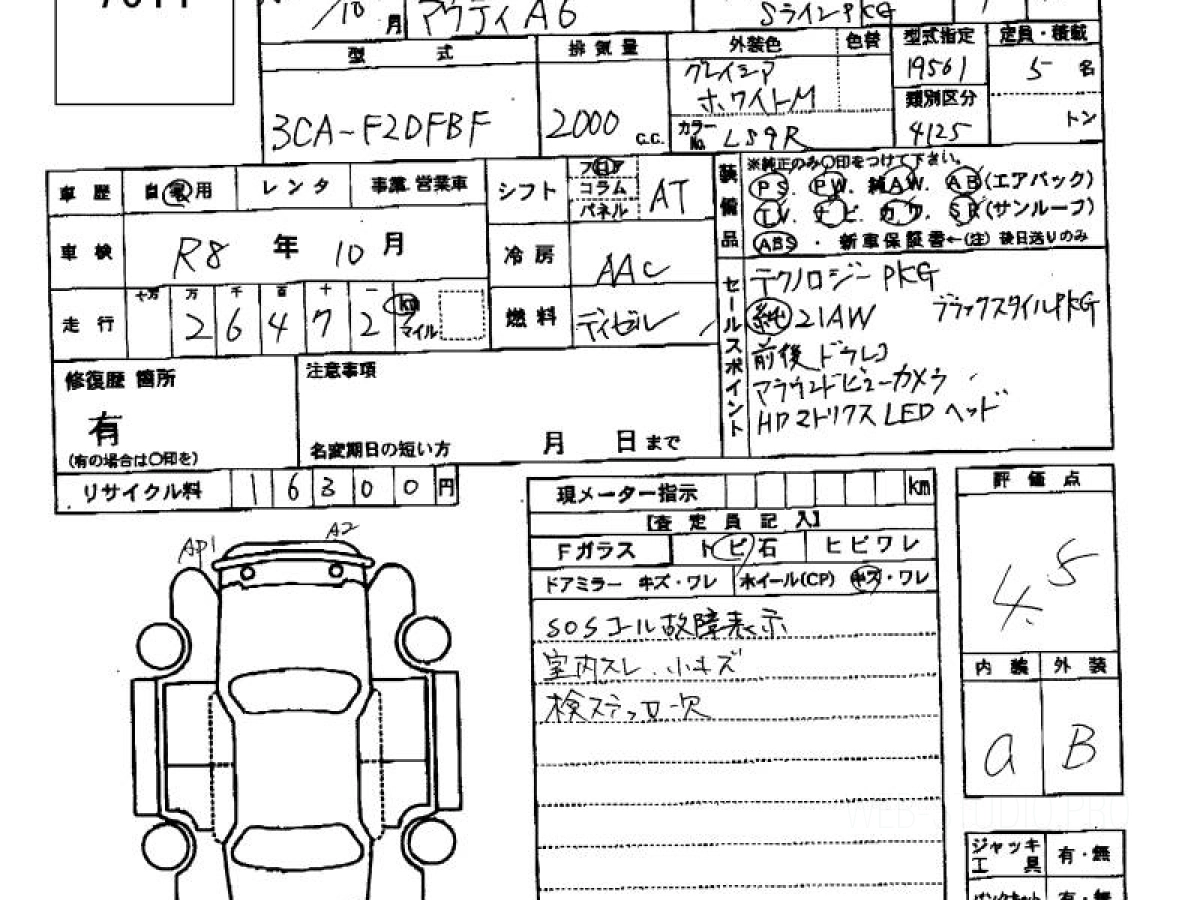 /10月 アウディA6 SラインPKG
型式 排気量 外装色 色替 型式指定 定員・積載
グレイシア 19561 5名
ホワイトM 類別区分
3CA-F2DFBF 2000 C.C. カラーNo. LS9R 4125 トン
車歴 自家用 レンタ 事業・営業車 シフト フロア コラム パネル AT
装備品 ※純正のみ〇印をつけて下さい。
PS. PW. 純AW. AB(エアバック)
TV. ナビ. カワ. SR(サンルーフ)
ABS ・ 新車保証書←(注) 後日送りのみ
車検 R8年10月 冷房 AAC
走行 十万 万 千 百 十 一 km マイル
2 6 4 7 2
燃料 ディーゼル
セールスポイント テクノロジーPKG
純21AW ブラックスタイルPKG
前後ドラレコ
アラウンドビューカメラ
HDマトリクスLEDヘッド
修復歴 箇所 注意事項
有
(有の場合は〇印を) 名変期日の短い方 月 日まで
リサイクル料 16300円
現メーター指示 km
【査定員記入】
Fガラス トビ石 ヒビワレ
ドアミラー キズ・ワレ ホイール(CP) キズ・ワレ
SOSコール故障表示
室内スレ.小キズ
AP1 A2
評価点
4.5
内装 外装
a B
ジャッキ 工具 有・無